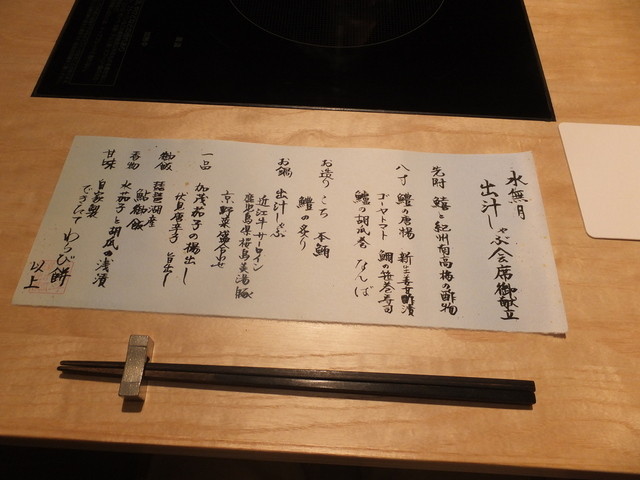 水無月
出汁しゃぶ会席御献立
先附 鱧と紀州南高梅の酢物
八寸 鱧の唐揚 新生姜酢漬
ゴーヤトマト 鯛の笹巻寿司
鱧の胡瓜巻 なんば
お造り こち 本鮪
鱧の炙り
お鍋 出汁しゃぶ
近江牛サーロイン
鹿児島県桜島美湯豚
京野菜盛合わせ
一品 加茂茄子の揚出し
伏見唐辛子 旨出し
御飯 琵琶湖産
鮎御飯
香物 水茄子と胡瓜の浅漬
甘味 自家製
できたて わらび餅
以上